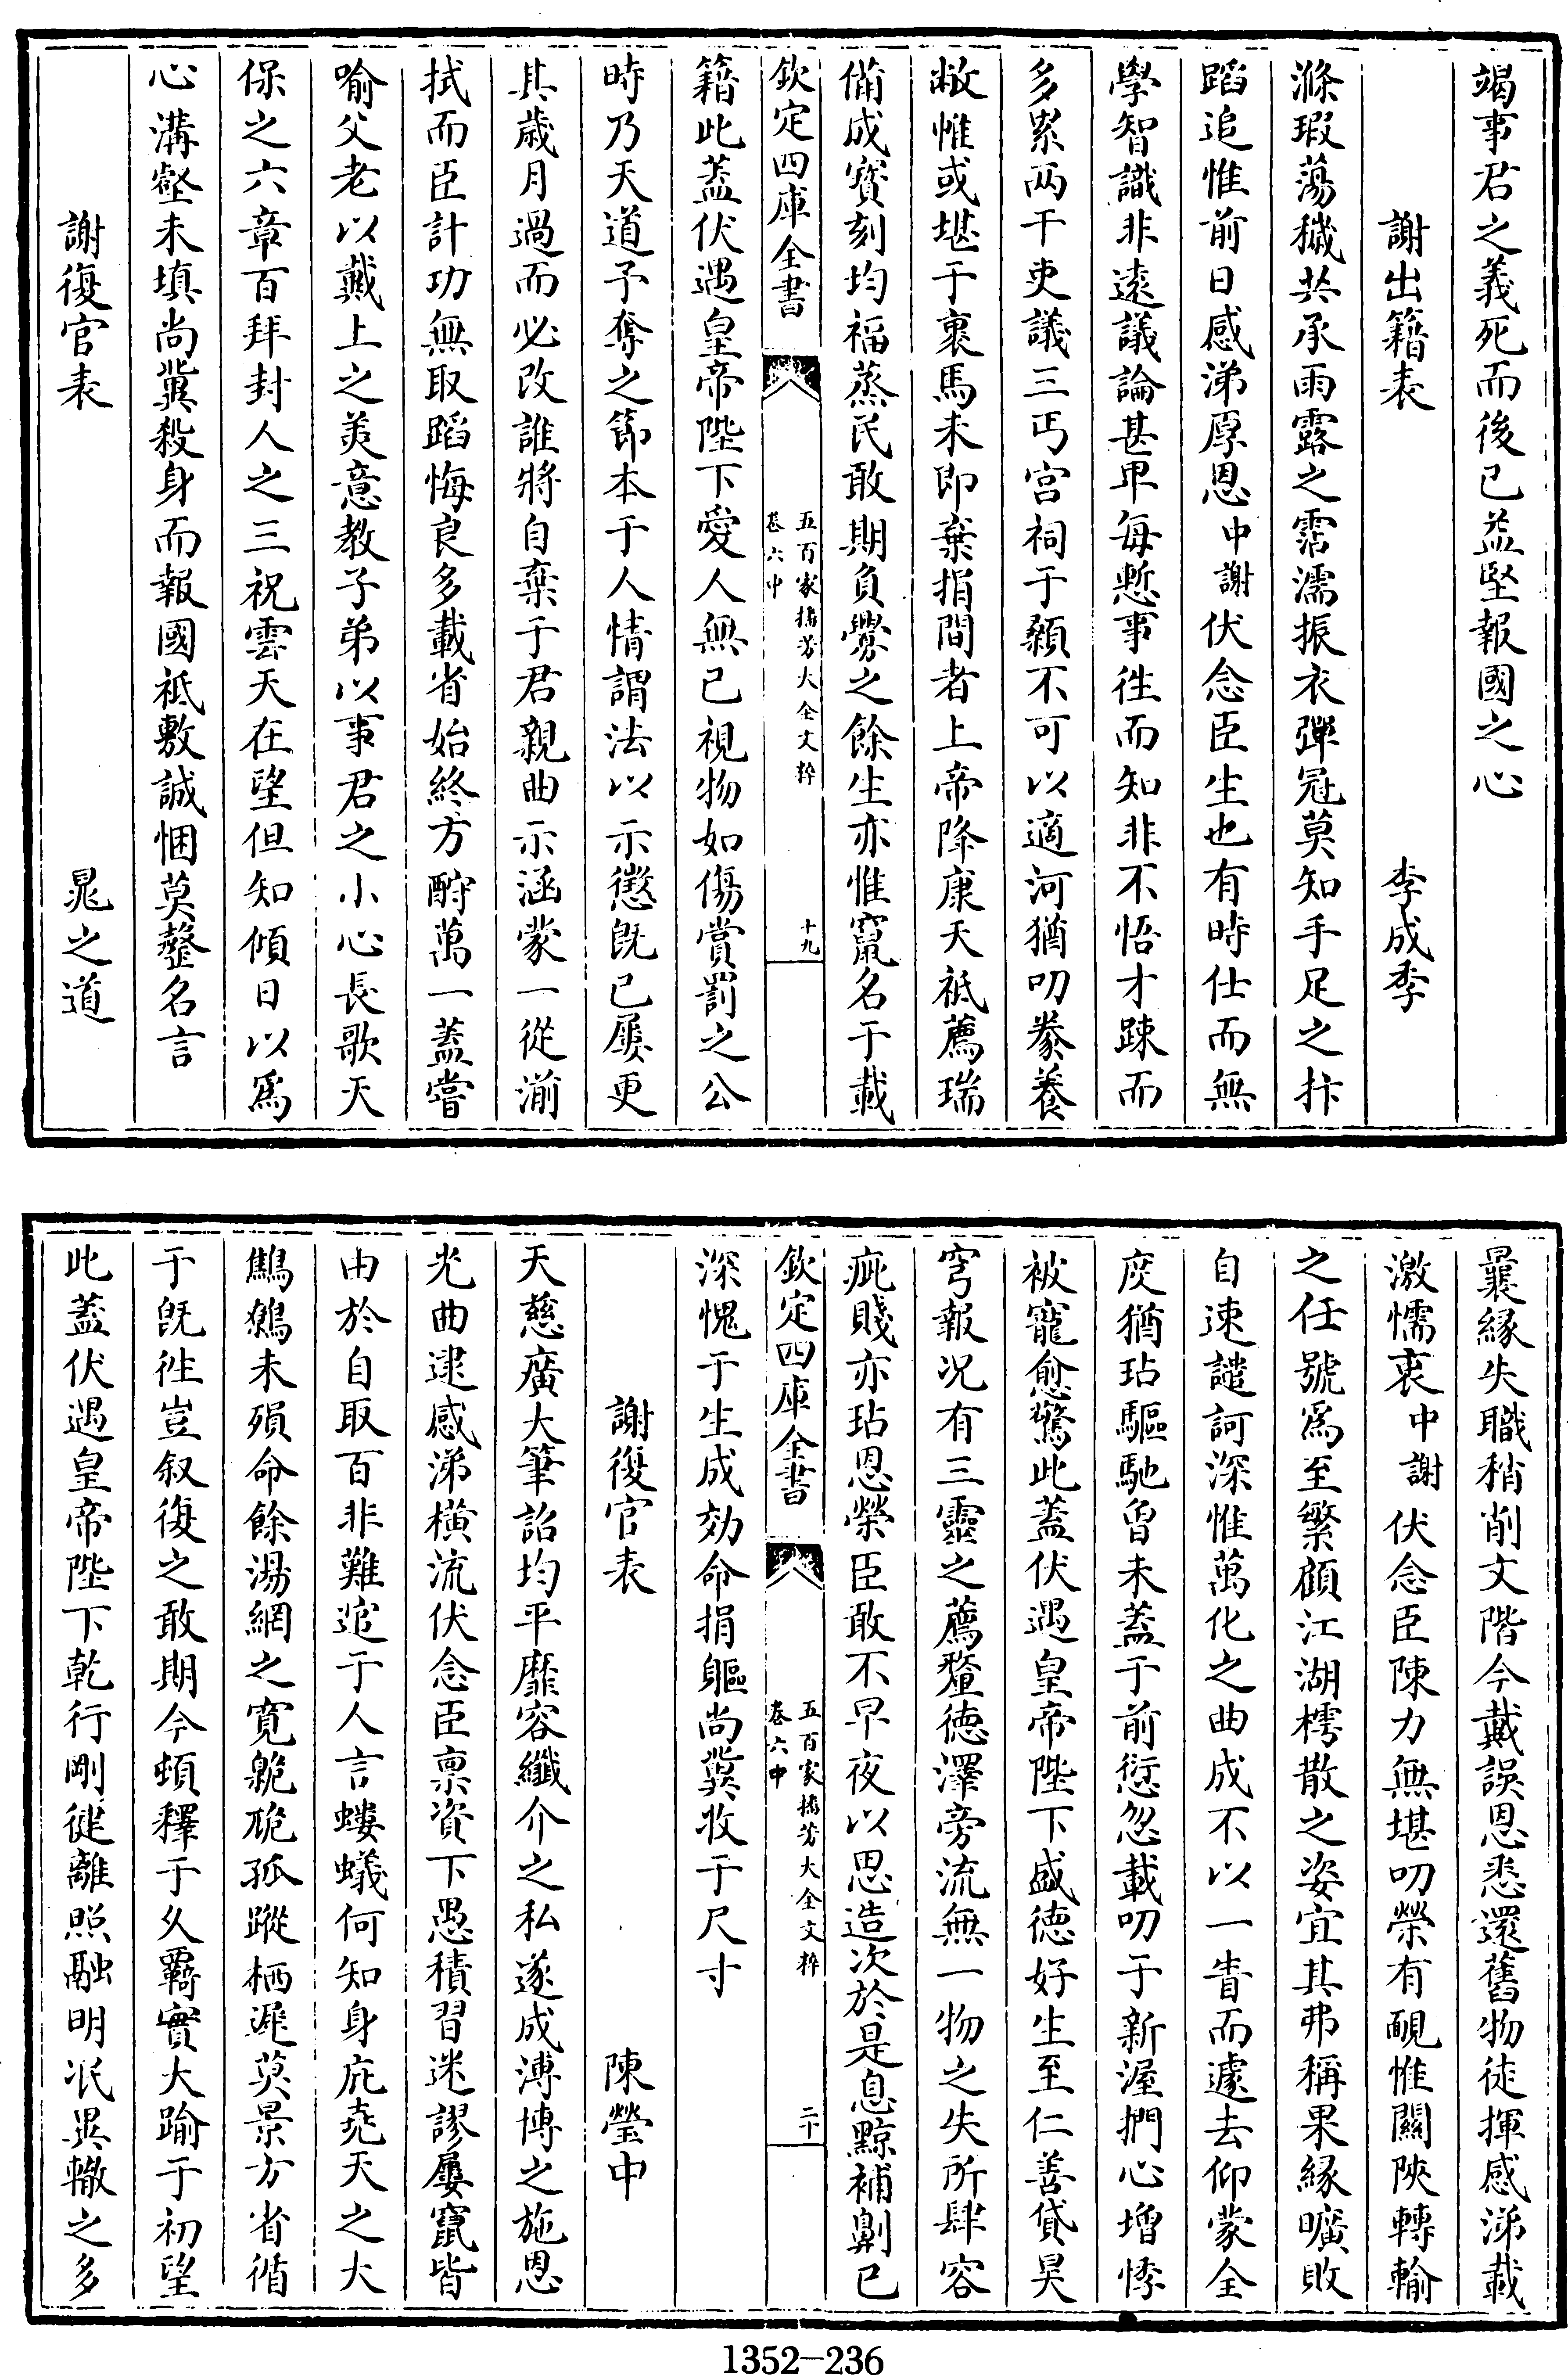 竭事君之義死而後已益堅報國之心
謝出籍表　李成季
滌瑕蕩穢共承雨露之霑濡振衣彈冠莫知手足之抃
蹈追惟前日感涕厚恩中謝伏念臣生也有時仕而無
學智識非遠議論甚卑每慙事徃而知非不悟才踈而
多累兩干吏議三丐宮祠于顙不可以適河猶叨豢養
敝帷或堪于裹馬未即棄捐間者上帝降康天祗薦瑞
備成寳刻均福蒸民敢期負釁之餘生亦惟竄名于載
欽定四庫全書　五百家播芳大全文粹 卷六中　十九
籍此葢伏遇皇帝陛下愛人無已視物如傷賞罰之公
時乃天道予奪之節本于人情謂法以示懲旣已屢更
其歲月過而必改誰將自棄于君親曲示涵蒙一從湔
拭而臣計功無取蹈悔良多載省始終方酧萬一蓋嘗
喻父老以戴上之美意教子弟以事君之小心長歌天
保之六章百拜封人之三祝雲天在望但知傾日以爲
心溝壑未填尚冀殺身而報國祗敷誠悃莫罄名言
謝復官表　晁之道
曩緣失職稍削文階今戴誤恩悉還舊物徒揮感涕載
激懦衷中謝伏念臣陳力無堪叨榮有靦惟闗陜轉輸
之任號爲至繁顧江湖樗散之姿宜其弗稱果緣曠敗
自速譴訶深惟萬化之曲成不以一眚而遽去仰蒙全
庋猶玷驅馳曾未蓋于前愆忽載叨于新渥捫心增悸
被寵愈驚此葢伏遇皇帝陛下盛德好生至仁善貸昊
穹報况有三靈之薦釐德澤旁流無一物之失所肆容
疵賤亦玷恩榮臣敢不早夜以思造次於是息黥補劓已
欽定四庫全書　五百家播芳大全文粹 卷六中　二十
深愧于生成効命捐軀尚冀收于尺寸
謝復官表　陳瑩中
天慈廣大筆詔均平靡容纖介之私遂成溥博之施恩
光曲逮感涕橫流伏念臣禀資下愚積習迷謬屢竄皆
由於自取百非難逭于人言螻蟻何知身庇堯天之大
鷦鷯未殞命餘湯網之寛臲卼孤蹤栖遲莫景方省循
于旣徃豈叙復之敢期今頓釋于久覊實大踰于初望
此蓋伏遇皇帝陛下乾行剛健離照融明冺異轍之多
1352-236